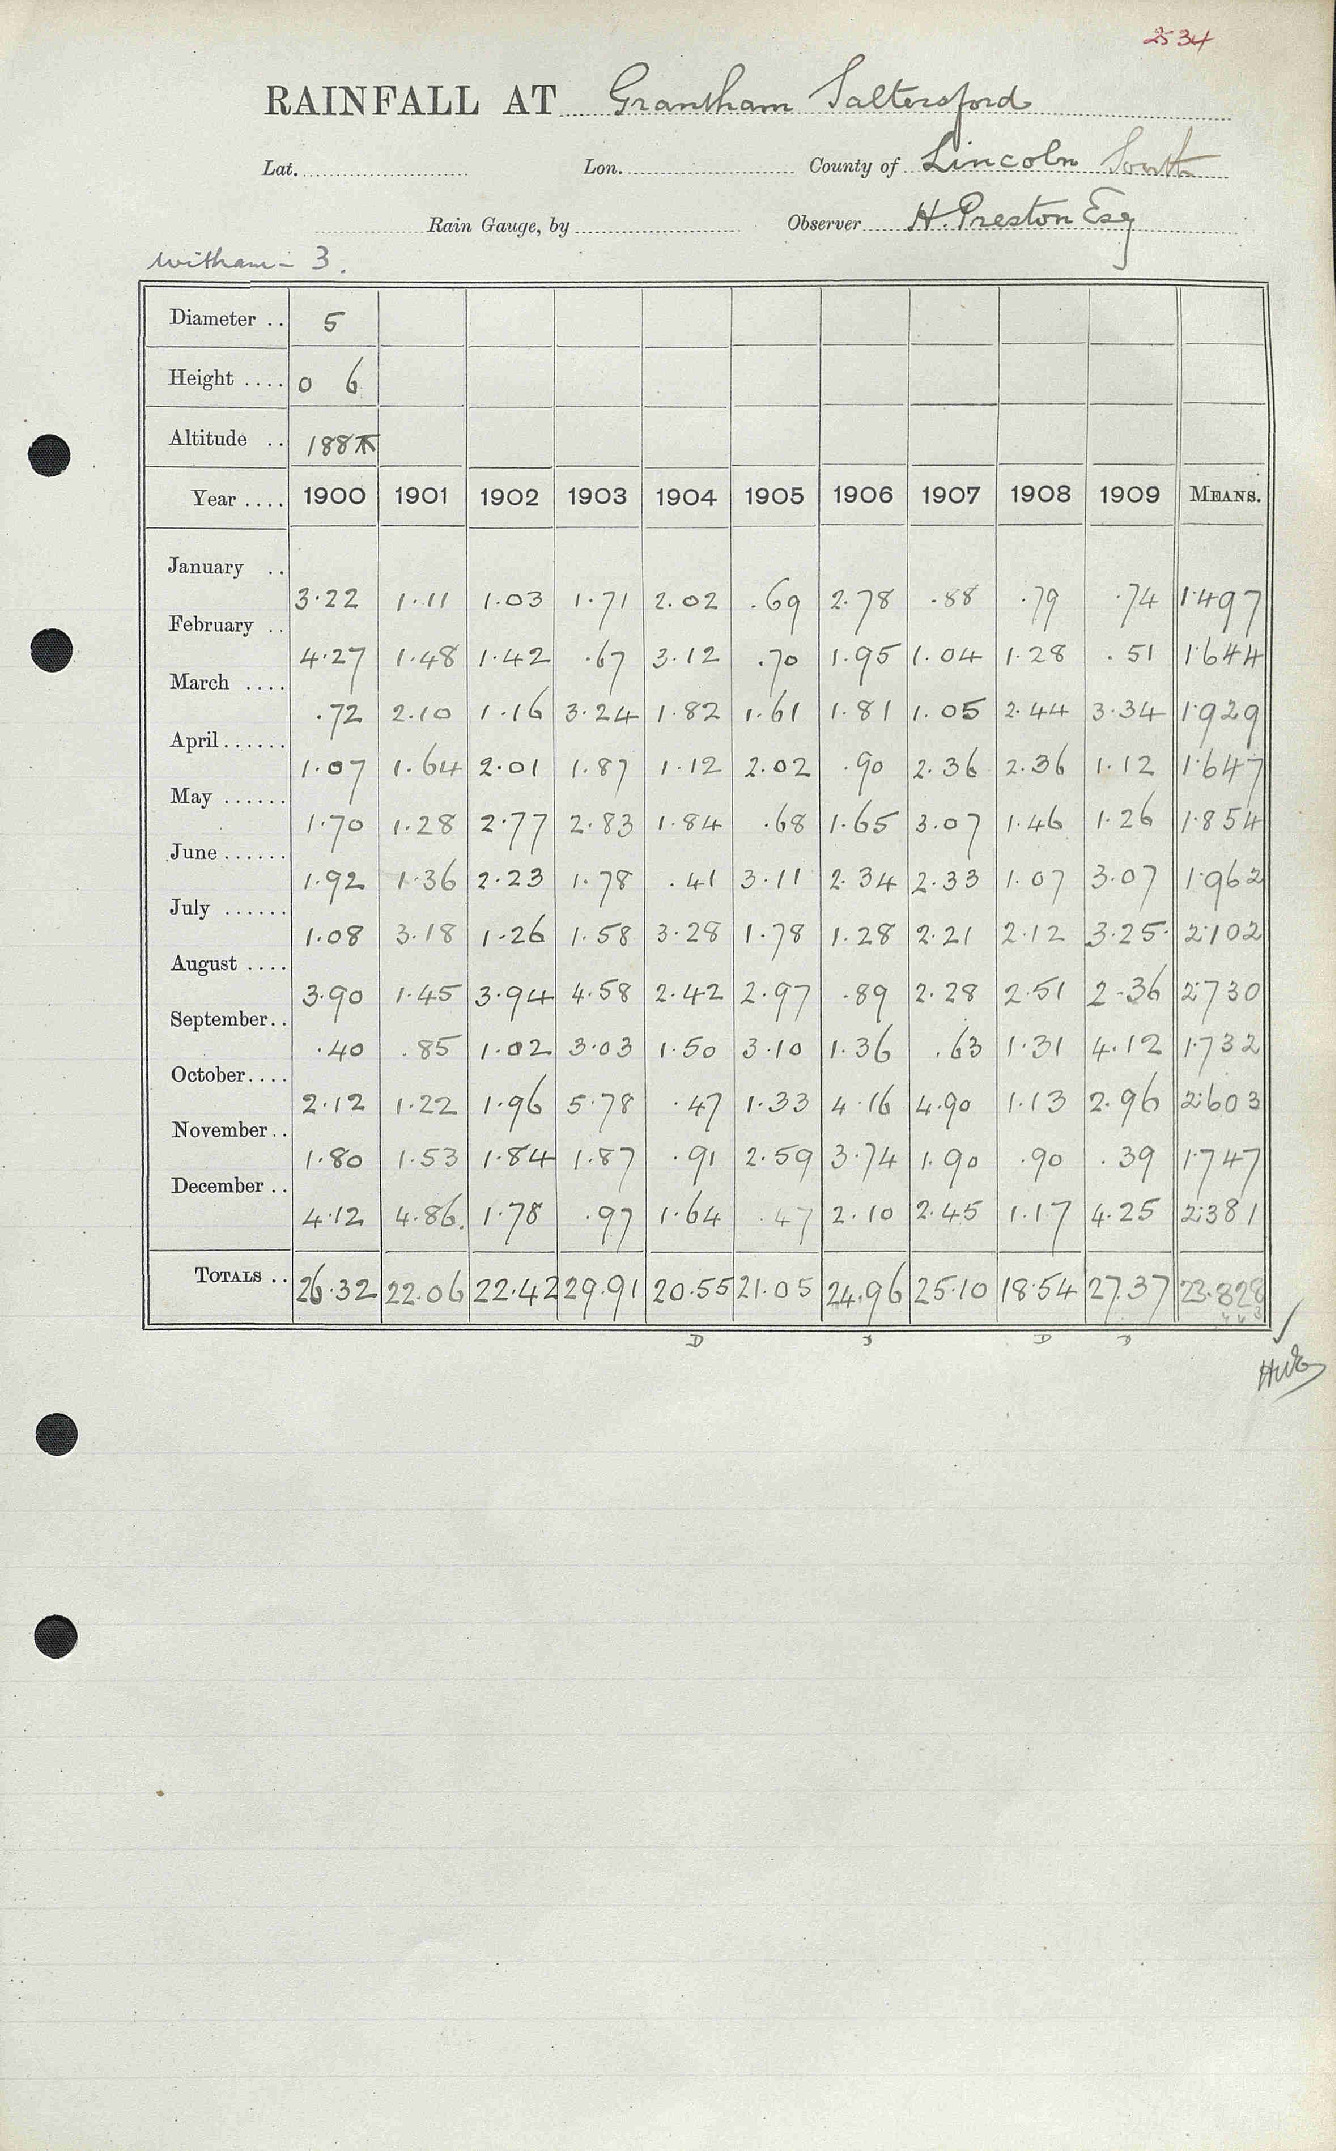 2534
RAINFALL AT Grantham Saltersford
Lat. Lon. County of Lincoln South
Rain Gauge, by Observer H. Preston Esq
Witham - 3.
Diameter .. 5
Height .... 0 6
Altitude .. 188
Year .... 1900 1901 1902 1903 1904 1905 1906 1907 1908 1909 MEANS.
January .. 3.22 1.11 1.03 1.71 2.02 .69 2.78 .88 .79 .74 1.497
February .. 4.27 1.48 1.42 .67 3.12 .70 1.95 1.04 1.28 .51 1.644
March .... .72 2.10 1.16 3.24 1.82 1.61 1.81 1.05 2.44 3.34 1.929
April ...... 1.07 1.64 2.01 1.87 1.12 2.02 .90 2.36 2.36 1.12 1.647
May ...... 1.70 1.28 2.77 2.83 1.84 .68 1.65 3.07 1.46 1.26 1.854
June ...... 1.92 1.36 2.23 1.78 .41 3.11 2.34 2.33 1.07 3.07 1.962
July ...... 1.08 3.18 1.26 1.58 3.28 1.78 1.28 2.21 2.12 3.25 2.102
August .... 3.90 1.45 3.94 4.58 2.42 2.97 .89 2.28 2.51 2.36 2.730
September .. .40 .85 1.02 3.03 1.50 3.10 1.36 .63 1.31 4.12 1.732
October .... 2.12 1.22 1.96 5.78 .47 1.33 4.16 4.90 1.13 2.96 2.603
November .. 1.80 1.53 1.84 1.87 .91 2.59 3.74 1.90 .90 .39 1.747
December .. 4.12 4.86. 1.78 .97 1.64 .47 2.10 2.45 1.17 4.25 2.381
TOTALS .. 26.32 22.06 22.42 29.91 20.55 21.05 24.96 25.10 18.54 27.37 23.828
D D D D